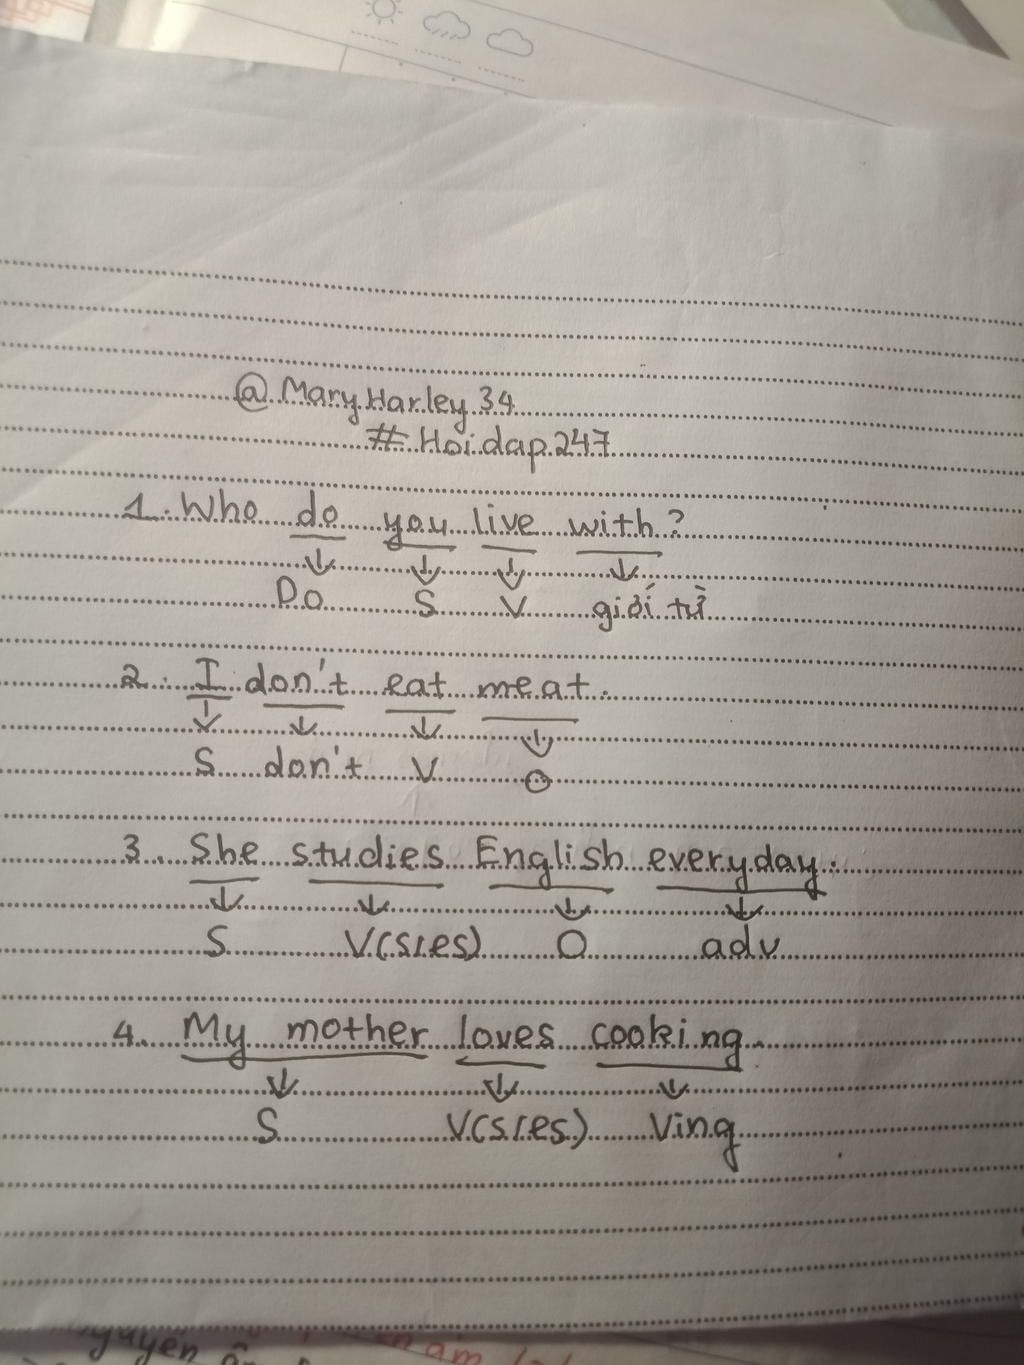 @MaryHarley34
#Hoidap247
1. Who do you live with?
Do S V giới từ
2. I don't eat meat.
S don't V O
3. She studies English everyday.
S V(s/es) O adv
4. My mother loves cooking.
S V(s/es) Ving